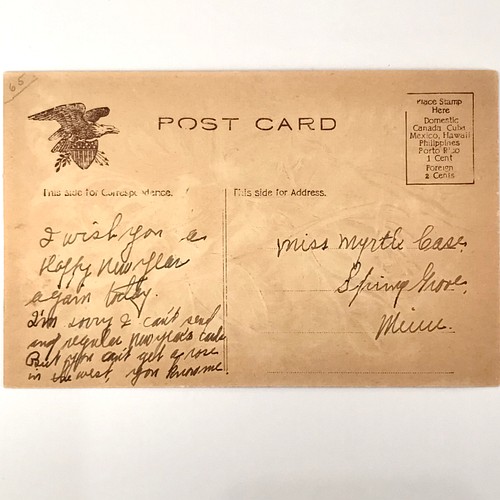 65
POST CARD
Place Stamp
Here
Domestic
Canada, Cuba
Mexico, Hawaii
Philippines
Porto Rico
1 Cent
Foreign
2 Cents
This side for Correspondence.
This side for Address.
I wish you a
Happy New Year
again today.
I'm sorry I can't send
any regular New Year's cards
But you can't get a rose
in the west, you know me.
Miss Myrtle Case,
Spring Grove,
Minn.